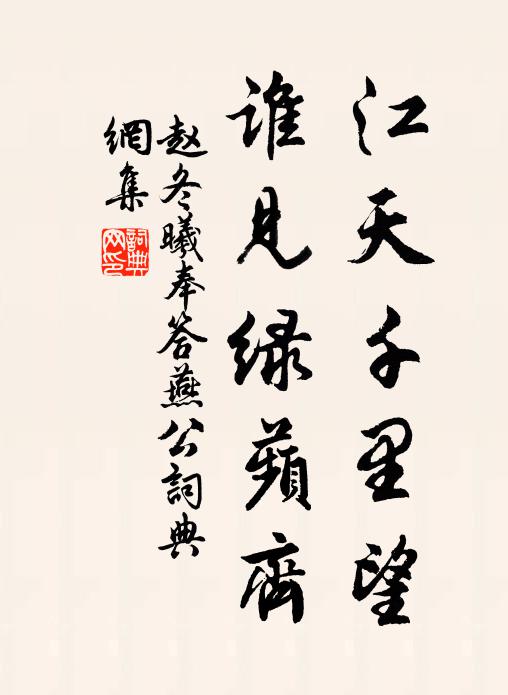 江天千里望
谁见绿蘋齊
赵冬曦奉答燕公詞典
網集
詞典
网印